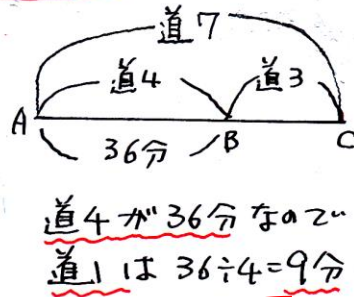 道7
道4 道3
A B C
36分
道4が36分なので
道1は36÷4=9分